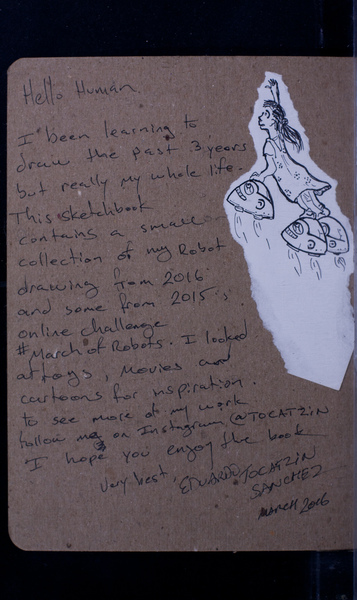 Hello Human
I been learning to
draw the past 3 years
but really my whole life.
This sketchbook
contains a small
collection of my Robot
drawing from 2016
and some from 2015's
online challenge
#March of Robots. I looked
at toys, Movies and
cartoons for inspiration.
to see more of my work
follow me on Instagram @TOCATZIN
I hope you enjoy the book
very best, EDUARDO TOCATZIN
SANCHEZ
march 2016